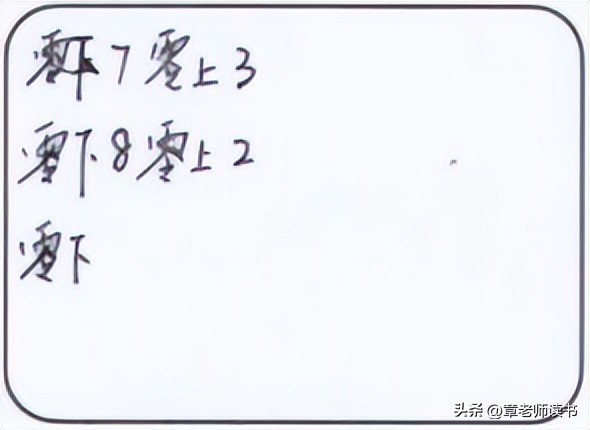 零下7零上3
零下8零上2
零下
头条 @章老师读书